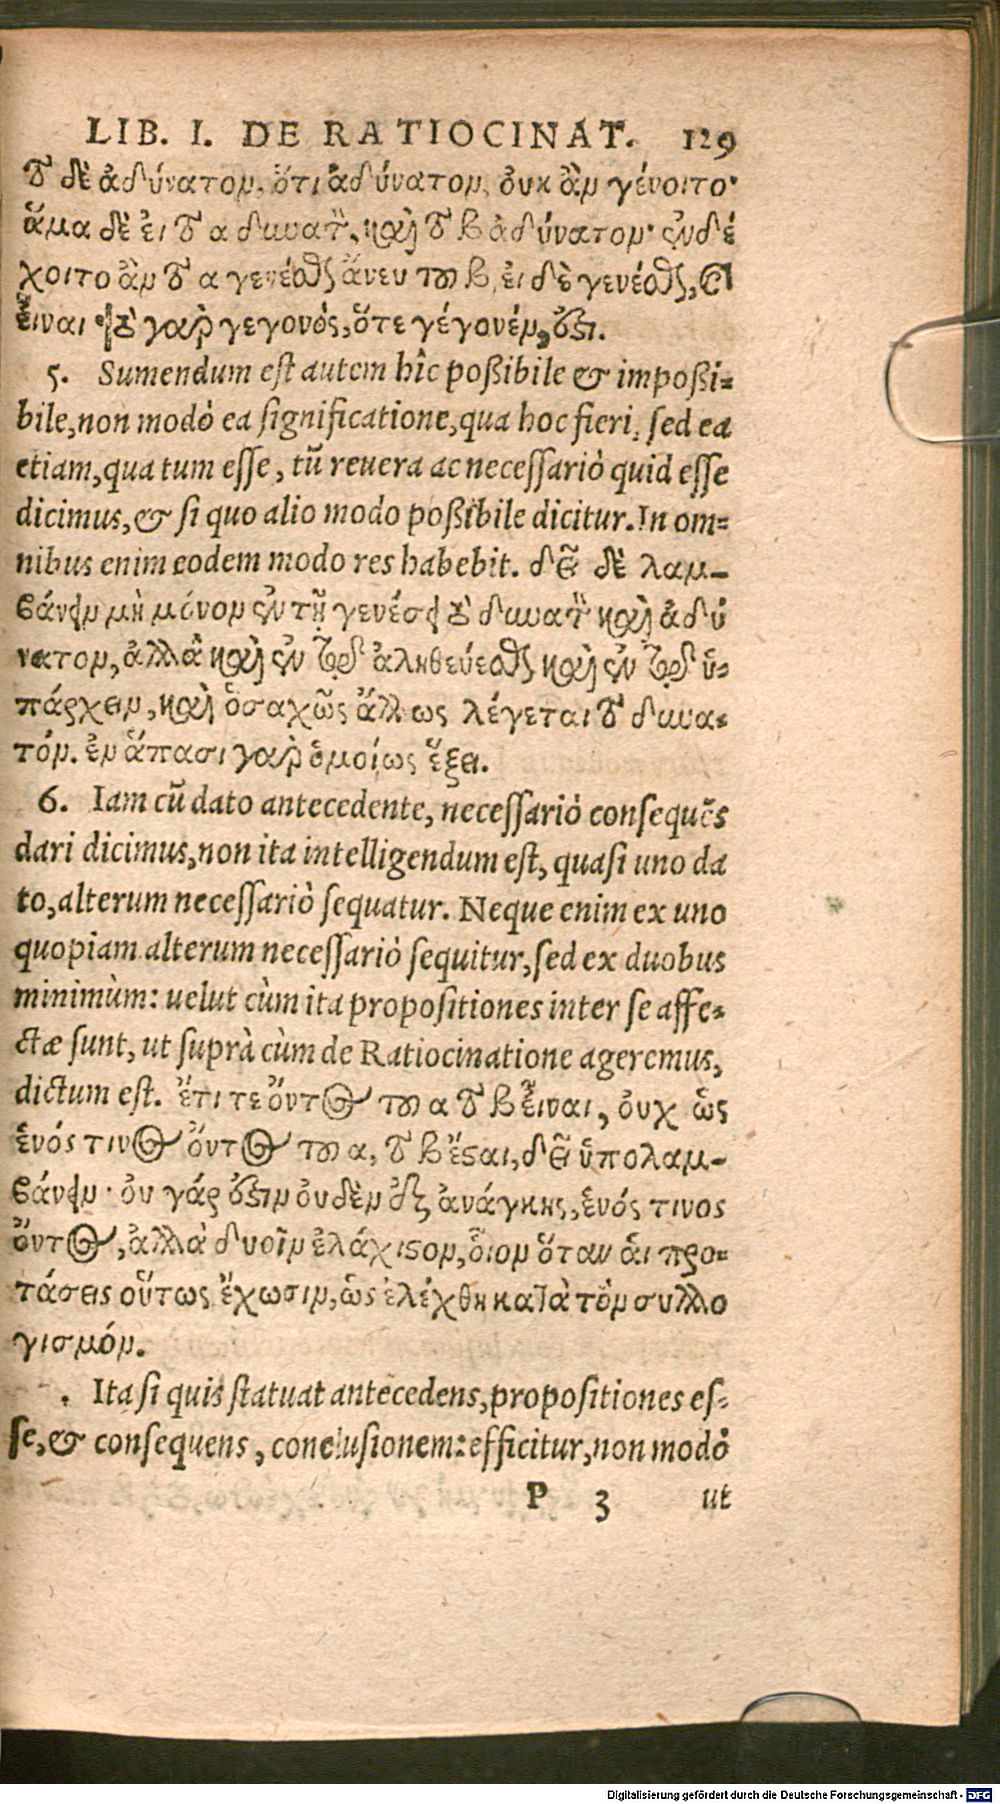 LIB. I. DE RATIOCINAT. 129
τὸ δὲ ἀδύνατον, ὅτι ἀδύνατον, οὐκ ἂν γένοιτο·
ἅμα δὲ εἰ τὸ α δυνατὸν, καὶ τὸ β ἀδύνατον· ἐνδέ
χοιτο ἂν τὸ α γενέσθαι ἄνευ τοῦ β, εἰ δὲ γενέσθαι, καὶ
εἶναι· τὸ γὰρ γεγονὸς, ὅτε γέγονέν, ἔστι.
5. Sumendum est autem hîc poßibile & impoßi=
bile, non modò ea significatione, qua hoc fieri, sed ea
etiam, qua tum esse, tũ reuera ac necessariò quid esse
dicimus, & si quo alio modo poßibile dicitur. In om=
nibus enim eodem modo res habebit. δεῖ δὲ λαμ-
βάνειν μὴ μόνον ἐν τῇ γενέσει τὸ δυνατὸν καὶ ἀδύ
νατον, ἀλλὰ καὶ ἐν τῷ ἀληθεύεσθαι καὶ ἐν τῷ ὑ=
πάρχειν, καὶ ὁσαχῶς ἄλλως λέγεται τὸ δυνα=
τόν. ἐν ἅπασι γὰρ ὁμοίως ἕξει.
6. Iam cũ dato antecedente, necessariò consequẽs
dari dicimus, non ita intelligendum est, quasi uno da
to, alterum necessariò sequatur. Neque enim ex uno
quopiam alterum necessariò sequitur, sed ex duobus
minimùm: uelut cùm ita propositiones inter se affe=
ctæ sunt, ut suprà cùm de Ratiocinatione ageremus,
dictum est. ἔτι τε ὄντος τοῦ α τὸ β εἶναι, οὐχ ὡς
ἑνός τινος ὄντος τοῦ α, τὸ β ἔσται, δεῖ ὑπολαμ-
βάνειν· οὐ γάρ ἔστιν οὐδὲν ἐξ ἀνάγκης, ἑνός τινος
ὄντος, ἀλλὰ δυοῖν ἐλάχιστον, οἷον ὅταν αἱ προ=
τάσεις οὕτως ἔχωσιν, ὡς ἐλέχθη κατὰ τὸν συλλο
γισμόν.
. Ita si quis statuat antecedens, propositiones es=
se, & consequens, conclusionem: efficitur, non modò
P 3 ut
Digitalisierung gefördert durch die Deutsche Forschungsgemeinschaft - DFG